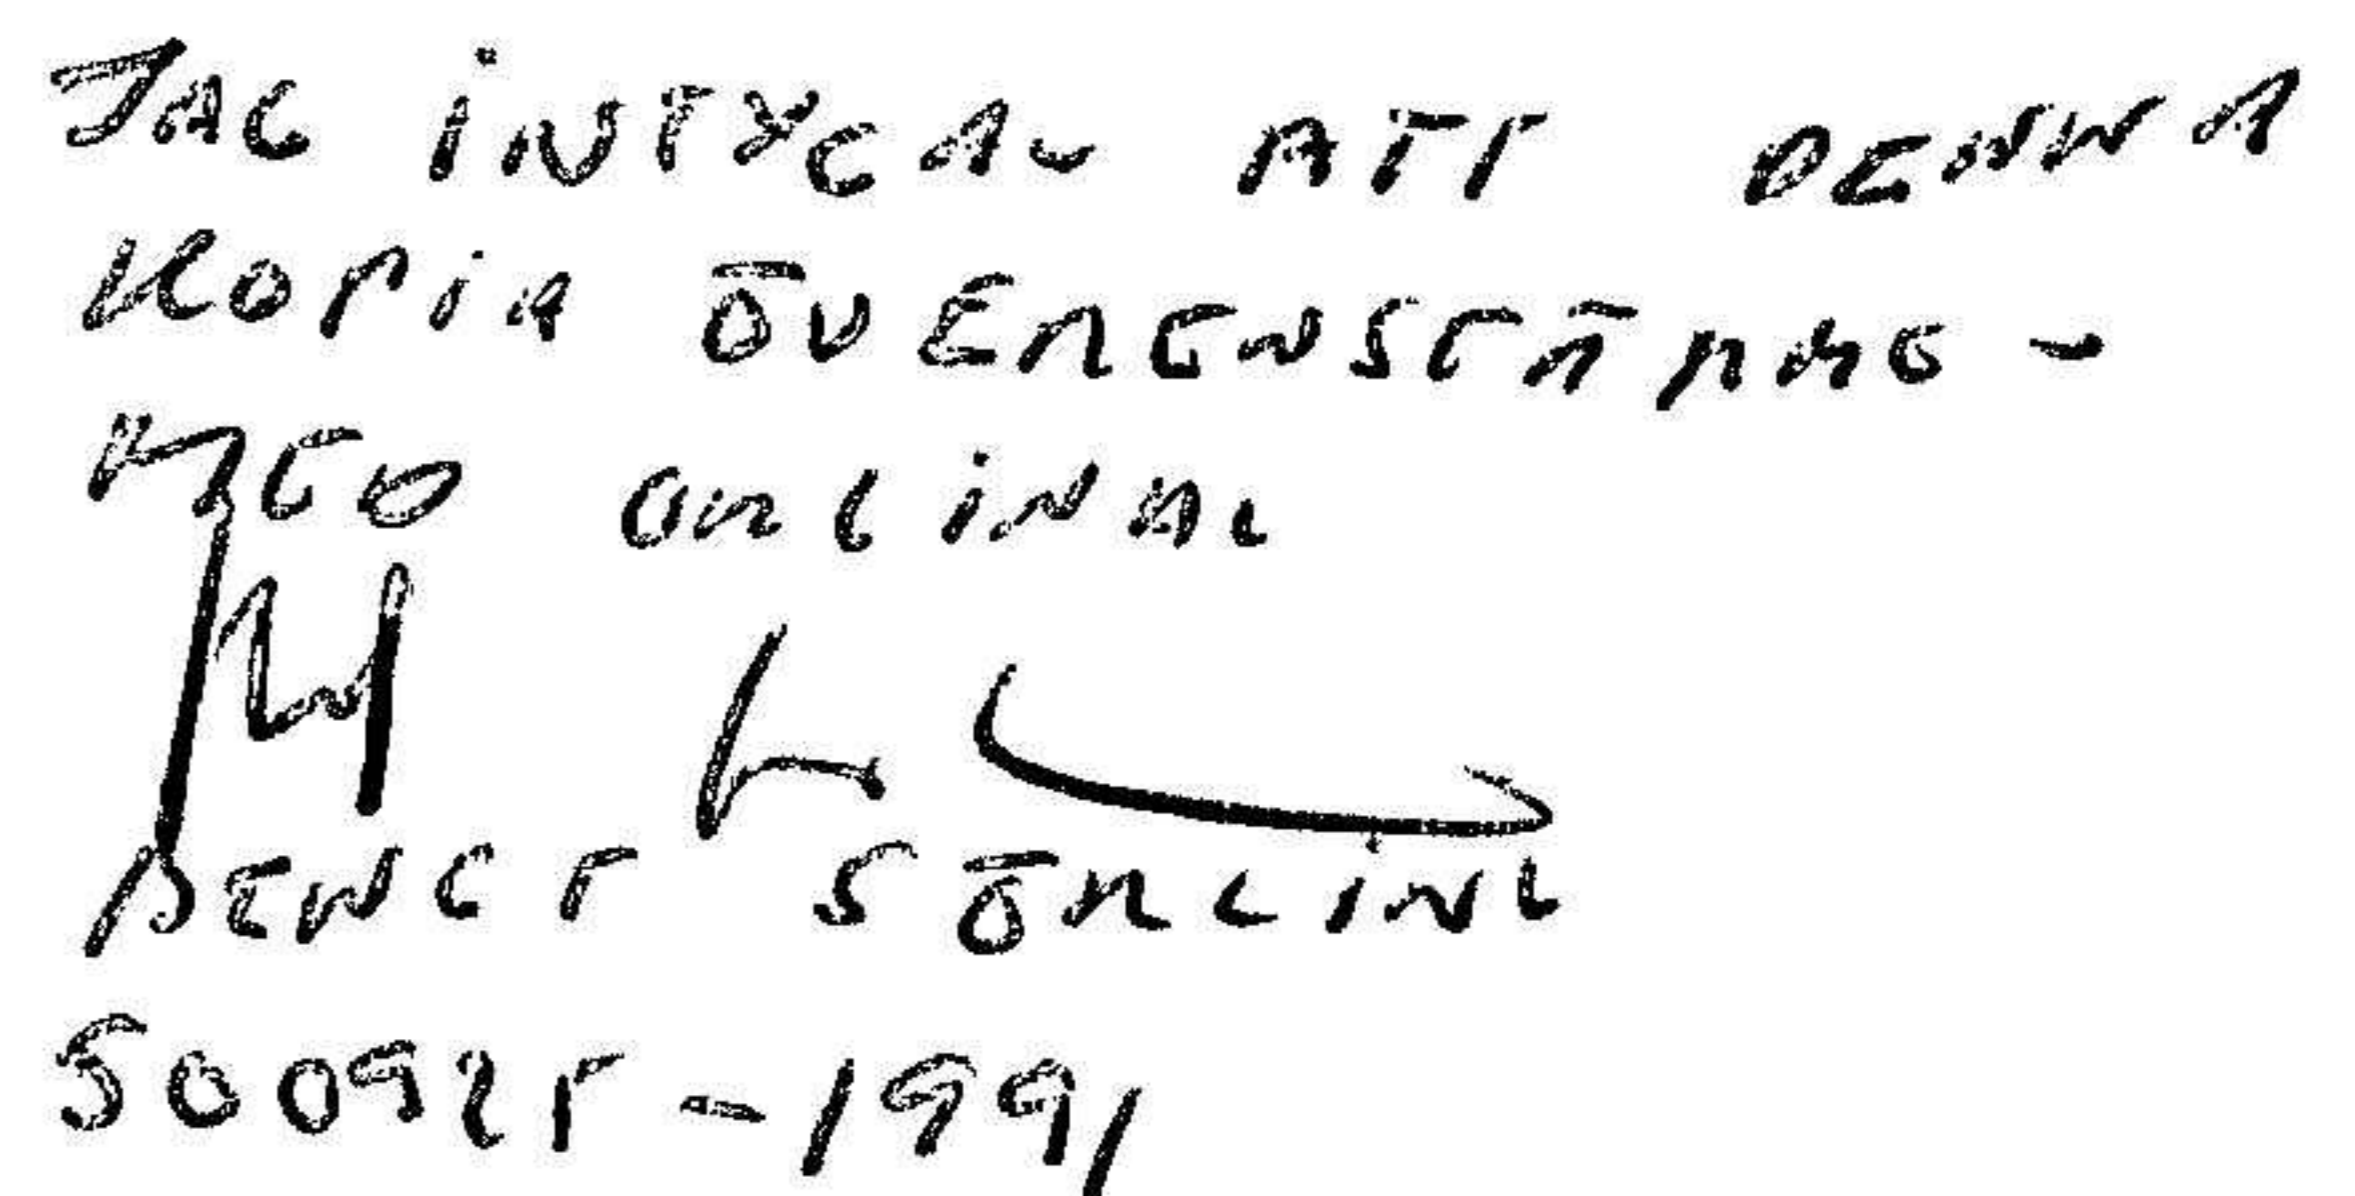 JAG INTYGAR ATT DENNA
KOPIA ÖVERENSTÄMME-
MED ORGINAL
BENGT SÖRLING